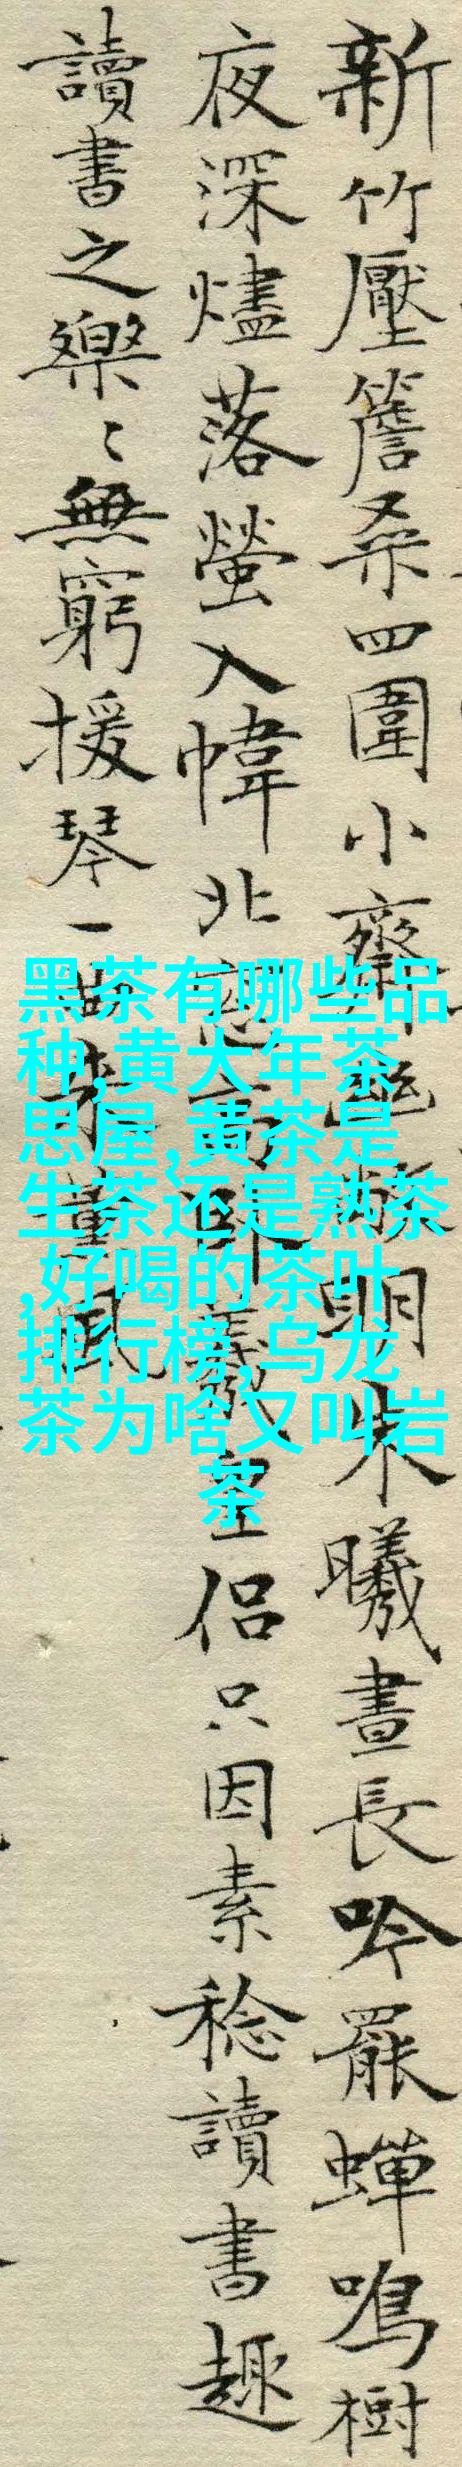 新竹壓簷桑四圍小齋幽敞明朱曦晝長吟罷蟬鳴樹
夜深燼落螢入幃北窓高卧羲皇侶只因素稔讀書趣
讀書之樂〻無窮援琴一曲來薰風
黑茶有哪些品
种,黄大年茶
思屋,黄茶是
生茶还是熟茶
,好喝的茶叶
排行榜,乌龙
茶为啥又叫岩
茶